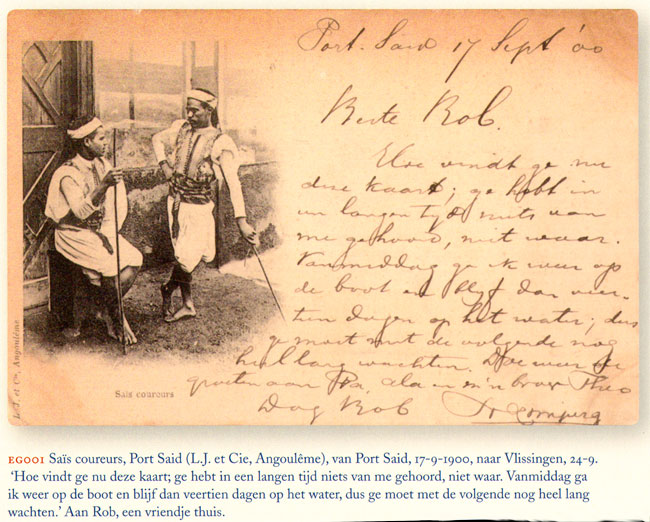 Port. Said 17 Sept '00
Beste Rob.
Hoe vindt ge nu
deze kaart; ge hebt in
een langen tijd niets van
me gehoord, niet waar.
Vanmiddag ga ik weer op
de boot en blijf dan veer-
tien dagen op het water; dus
ge moet met de volgende nog
heel lang wachten. Doe weer de
groeten aan Pa, Ma en m'n broer Theo
Dag Rob
L.J. et Cie, Angoulême
Saïs coureurs
EG001 Saïs coureurs, Port Said (L.J. et Cie, Angoulême), van Port Said, 17-9-1900, naar Vlissingen, 24-9.
'Hoe vindt ge nu deze kaart; ge hebt in een langen tijd niets van me gehoord, niet waar. Vanmiddag ga
ik weer op de boot en blijf dan veertien dagen op het water, dus ge moet met de volgende nog heel lang
wachten.' Aan Rob, een vriendje thuis.